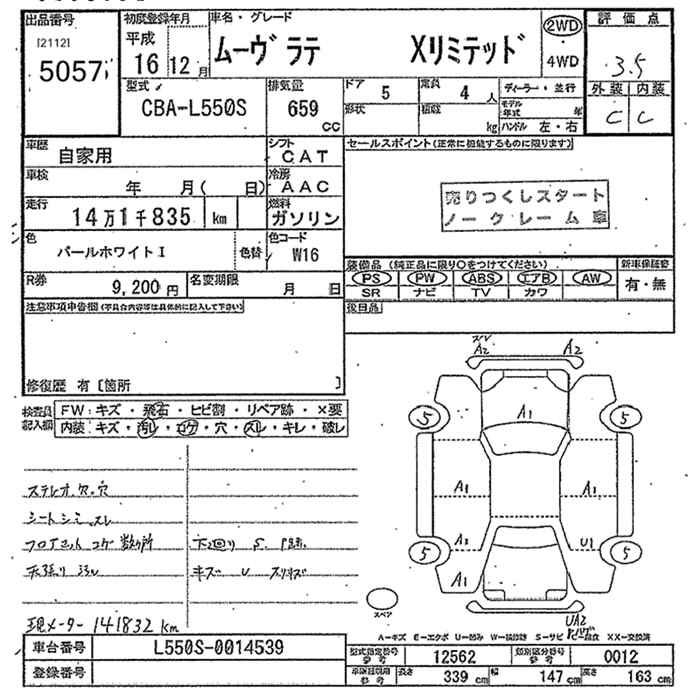 出品番号
[2112]
5057
初度登録年月
平成
16 12 月
車名・グレード
ムーヴ ラテ Xリミテッド
2WD
4WD
評価点
3.5
外装 内装
C C
型式
CBA-L550S
排気量
659
cc
ドア
5
定員
4 人
形状
積載
kg
ディーラー・並行
モデル年式 年
ハンドル 左・右
車歴
自家用
シフト
CAT
車検
年 月( 日)
冷房
AAC
走行
14万1千835 km
燃料
ガソリン
色
パールホワイトI
色替
色コード
W16
R券
9,200 円
名変期限
月 日
セールスポイント(正常に機能するものに限ります)
売りつくしスタート
ノークレーム車
装備品(純正品に限り○をつけてください)
新車保証書
PS PW ABS エアB AW
SR ナビ TV カワ
有・無
後日品
注意事項申告欄(不具合内容等は具体的に記入して下さい)
修復歴 有〔箇所 〕
検査員
記入欄
FW:キズ・飛石・ヒビ割・リペア跡・×要
内装:キズ・汚レ・コゲ・穴・スレ・キレ・破レ
A2
A2
A1
5
5
A1
A1
A1
U1
5
5
A1
UA2
スペア
ステレオ欠.穴
シートシミ.スレ
フロアマット コゲ 数ヶ所
天張り
下回り S.
キズ U
現メーター 141832 km
A―キズ E―エクボ U―凹み W―補修跡 S―サビ C―腐食 XX―交換済
車台番号
L550S-0014539
登録番号
型式指定番号
参考
12562
類別区分番号
参考
0012
参考
長さ 339 cm
幅 147 cm
高さ 163 cm